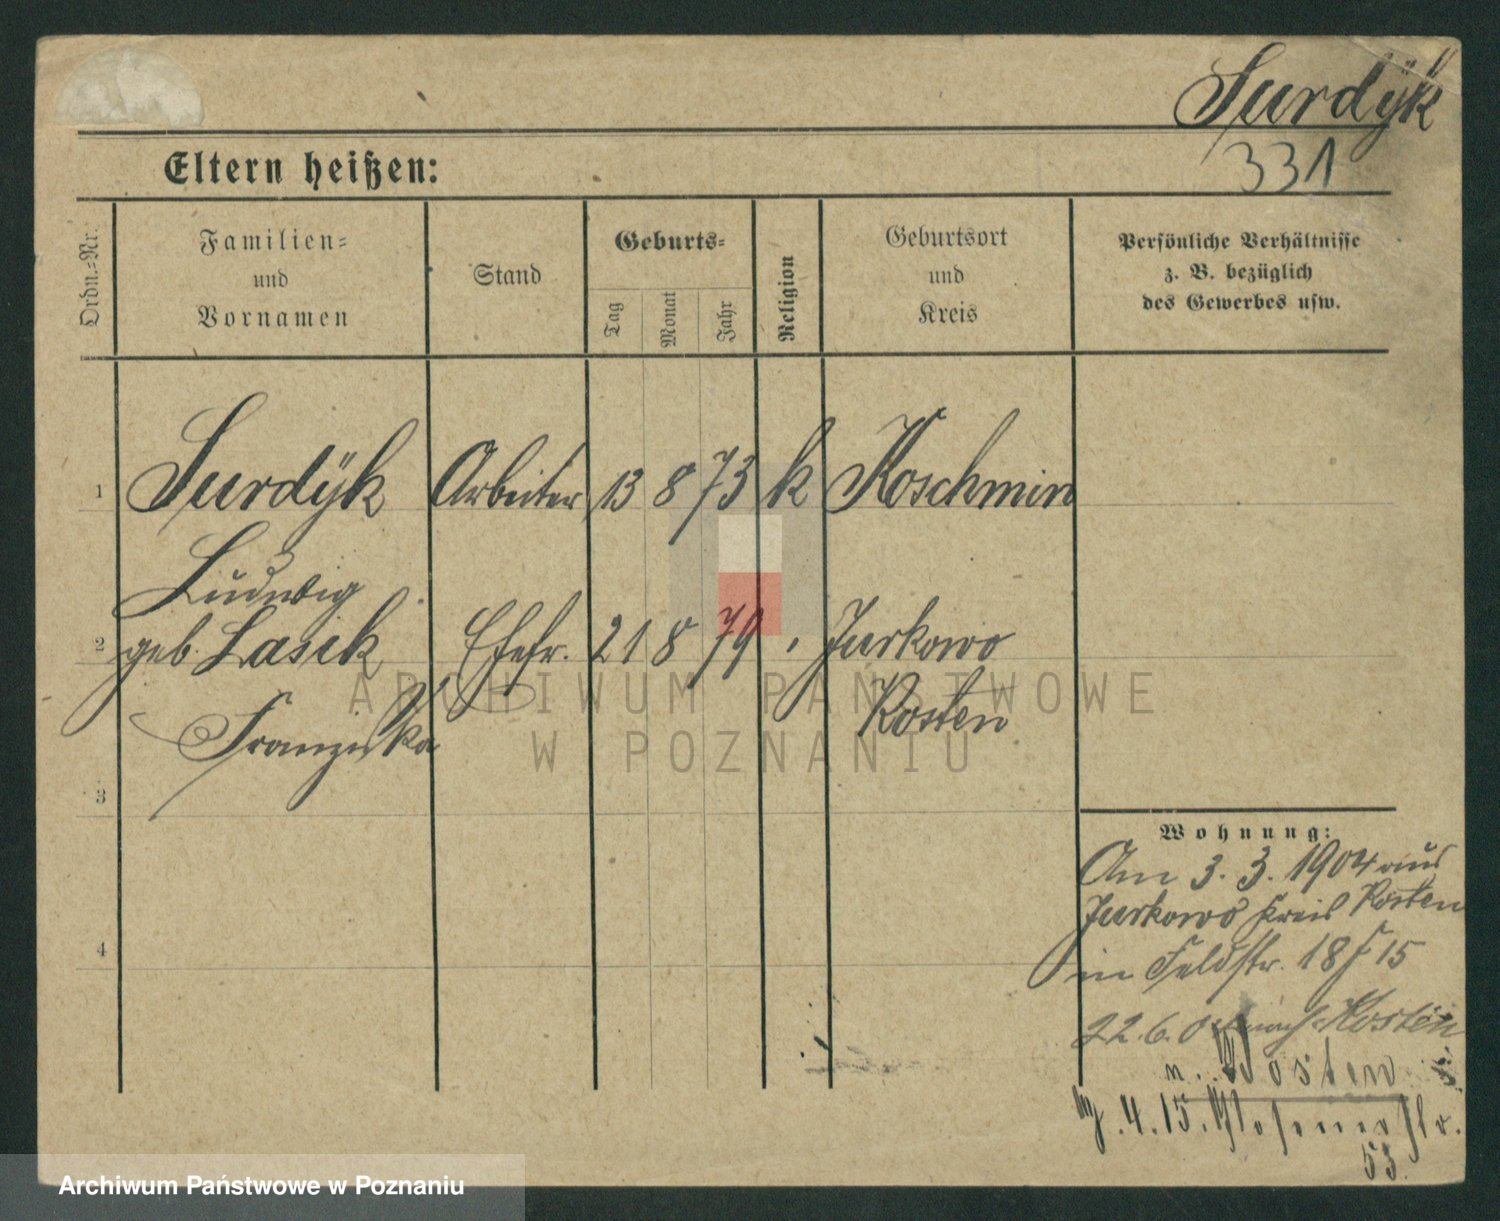 Surdÿk
331
Eltern heißen:
Ordn.-Nr.
Familien-
und
Vornamen
Stand
Geburts-
Tag
Monat
Jahr
Religion
Geburtsort
und
Kreis
Persönliche Verhältnisse
z. B. bezüglich
des Gewerbes usw.
1 Surdÿk Arbeiter 13 8 73 k Koschmin
Ludwig
2 geb. Lasik Ehefr. 21 8 79 " Jurkowo
Kosten
Franziska
3
4
Wohnung:
Am 3. 3. 1904 aus
Jurkowo Kreis Kosten
in Feldstr. 18 f 15
22. 6. nach Kosten
n. Posten
4. 15. Posenerstr.
53.
ARCHIWUM PAŃSTWOWE
W POZNANIU
Archiwum Państwowe w Poznaniu